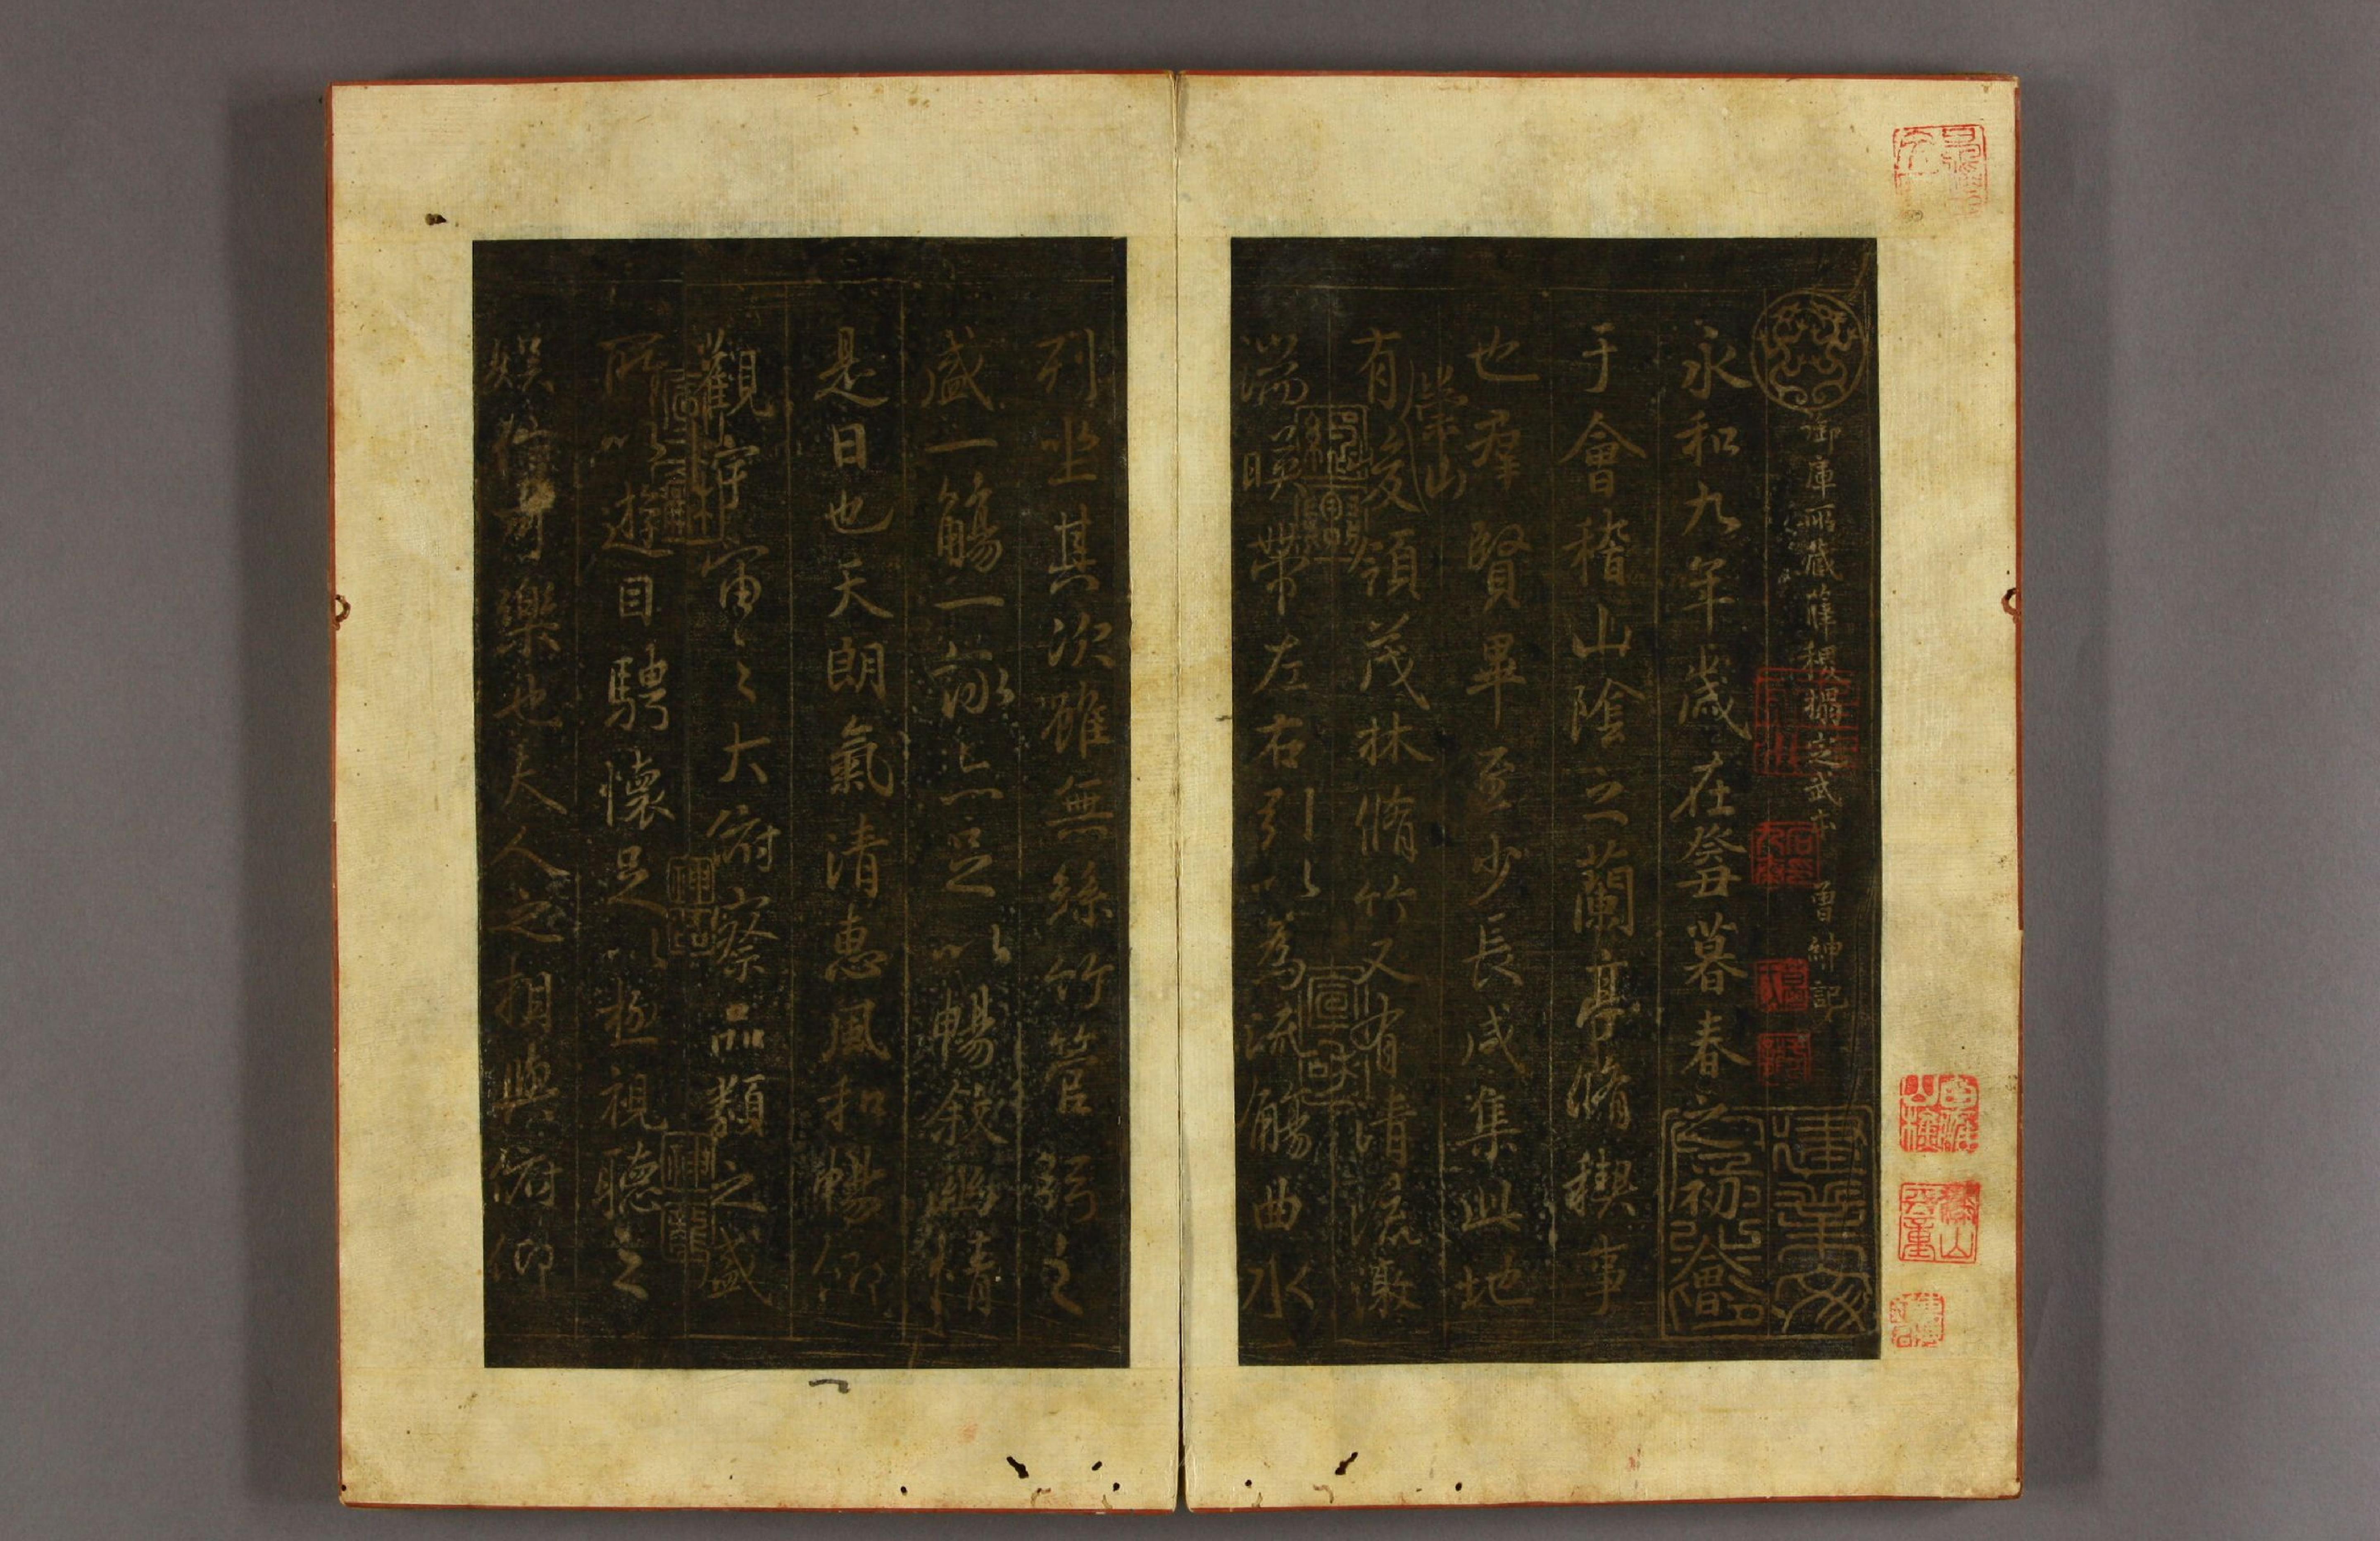 御庫所藏薛稷搨定武本 曾紳記
永和九年歲在癸丑暮春之初會
于會稽山陰之蘭亭脩禊事
也羣賢畢至少長咸集此地
有崇山峻領茂林脩竹又有清流激
湍暎帶左右引以為流觴曲水
列坐其次雖無絲竹管弦之
盛一觴一詠亦足以暢敘幽情
是日也天朗氣清惠風和暢仰
觀宇宙之大俯察品類之盛
所以遊目騁懷足以極視聽之
娛信可樂也夫人之相與俯仰